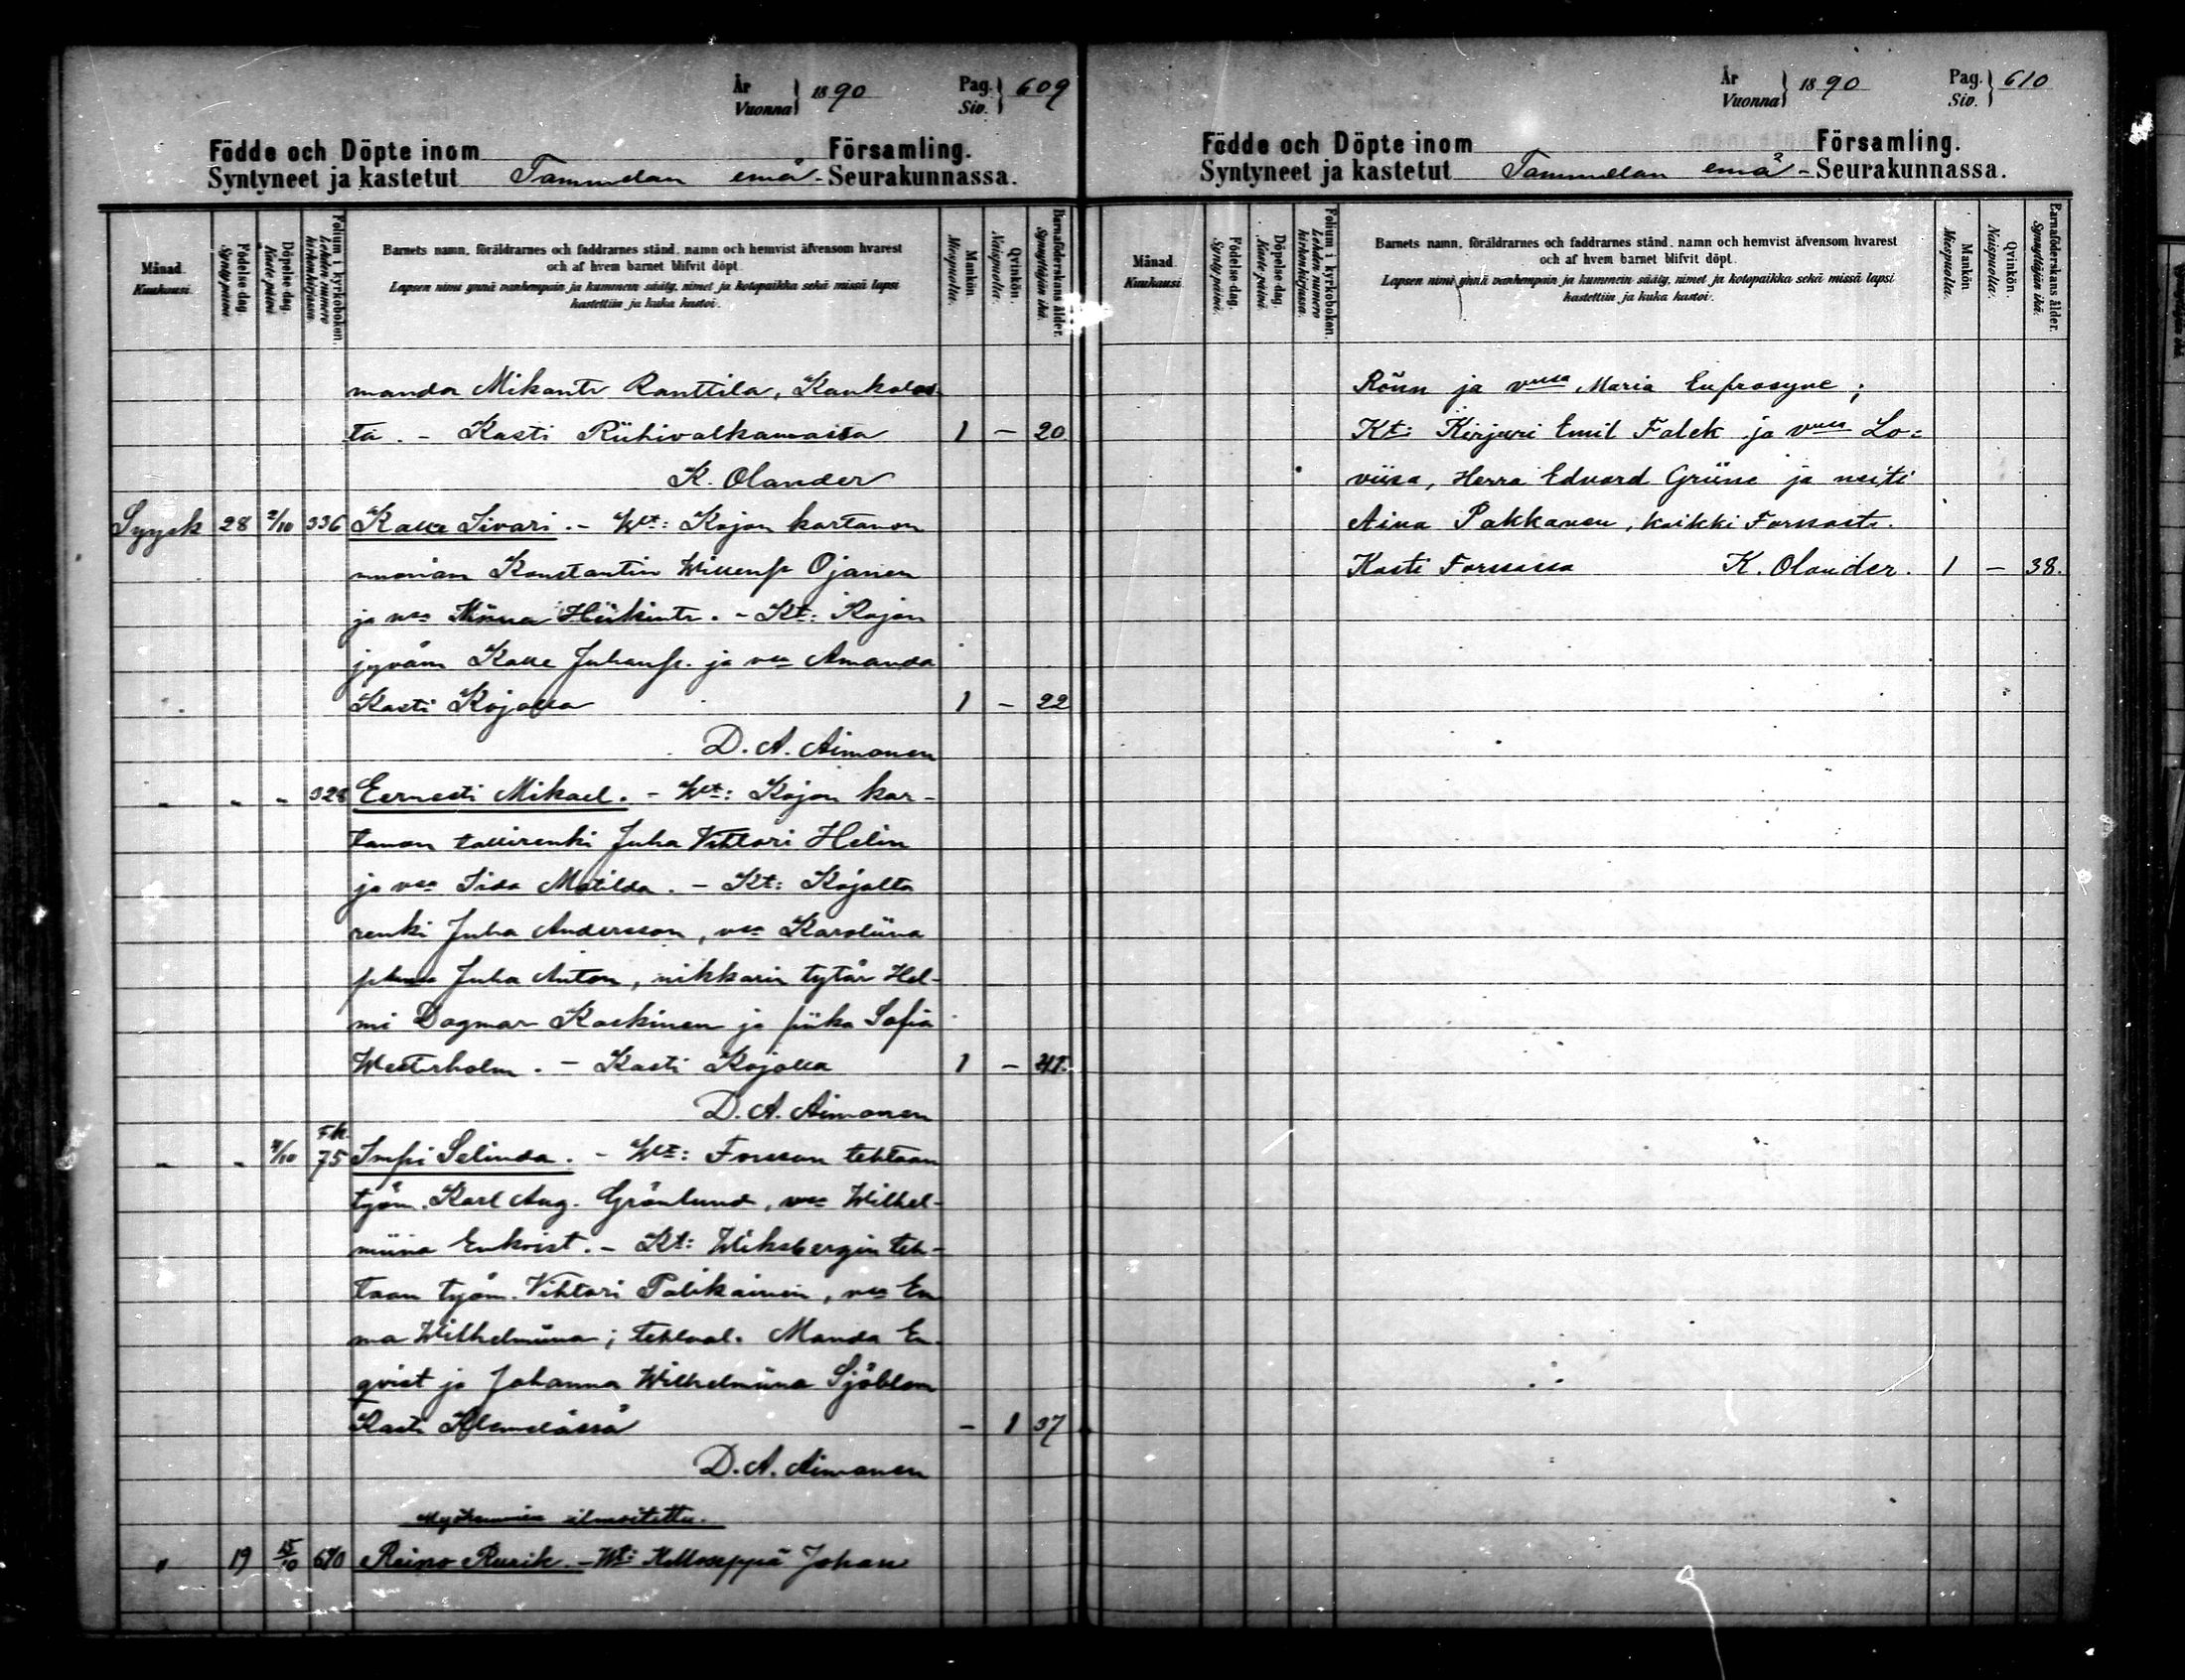 År
Vuonna } 1890 Pag.
Siv. } 609
Födde och Döpte inom Församling.
Syntyneet ja kastetut Tammelan emä- Seurakunnassa.
Månad
Kuukausi.
Födelse dag.
Synty päivä.
Döpelse dag.
Kaste päivä.
Folium i kyrkoboken.
Lehden numero
kirkonkirjassa.
Barnets namn, föräldrarnes och faddrarnes stånd, namn och hemvist äfvensom hvarest
och af hvem barnet blifvit döpt.
Lapsen nimi ynnä vanhempain ja kummein sääty, nimet ja kotopaikka sekä missä lapsi
kastettiin ja kuka kastoi.
Mankön
Miespuolia.
Qvinkön.
Naispuolia.
Barnaföderskans ålder.
Synnyttäjän ikä.
manda Mikante Ranttila, Kaukolas-
ta. - Kasti Riihivalkamassa 1 - 20
K. Olander
Syysk 28 2/10 336 Kalle Iivari. - Wt: Kojon kartanon
muonam Konstantin Willenp. Ojanen
ja vmo Miina Heikintr. - Kt: Kojon
jyväm Kalle Juhanp. ja vmo Amanda
Kasti Kojolla 1 - 22
D. A. Aimonen
" " " 328 Eernesti Mikael. - Wt: Kojon kar-
tanon tallirenki Juha Vihtori Helin
ja vmo Iida Matilda. - Kt: Kojolta
renki Juha Andersson, vmo Karoliina
Juha Anton, nikkarin tytär Hel-
mi Dagmar Koskinen ja piika Sofia
Westerholm. - Kasti Kojolla 1 - 41.
D. A. Aimonen
" " 4/10 F.K. 75 Impi Selinda. - Wt: Forssan tehtaan
työm. Karl Aug. Grönlund, vmo Wilhel-
miina Enkvist. - Kt: Wiksbergin teh-
taan työm. Vihtori Palikainen, vmo Em
ma Wilhelmiina; tehtaal. Manda En-
qvist ja Johanna Wilhelmiina Sjöblom
Kasti Klemelässä - 1 37
D. A. Aimonen
Myöhemmin ilmoitettu.
" 19 15/10 670 Reino Rurik. - Wt: Kelloseppä Johan
År
Vuonna } 1890 Pag.
Siv. } 610
Födde och Döpte inom Församling.
Syntyneet ja kastetut Tammelan emä- Seurakunnassa.
Månad
Kuukausi.
Födelse-dag.
Synty päivä.
Döpelse-dag.
Kaste päivä.
Folium i kyrkoboken.
Lehden numero
kirkonkirjassa.
Barnets namn, föräldrarnes och faddrarnes stånd, namn och hemvist äfvensom hvarest
och af hvem barnet blifvit döpt.
Lapsen nimi ynnä vanhempain ja kummein sääty, nimet ja kotopaikka sekä missä lapsi
kastettiin ja kuka kastoi.
Mankön
Miespuolia.
Qvinkön.
Naispuolia.
Barnaföderskans ålder.
Synnyttäjän ikä.
Rönn ja vmsa Maria Eufrosyne;
Kt: Kirjuri Emil Falck ja vmsa Lo=
viisa, Herra Edvard Grüne ja neiti
Aina Pakkanen, kaikki Forssasta.
Kasti Forssassa K. Olander. 1 - 38.